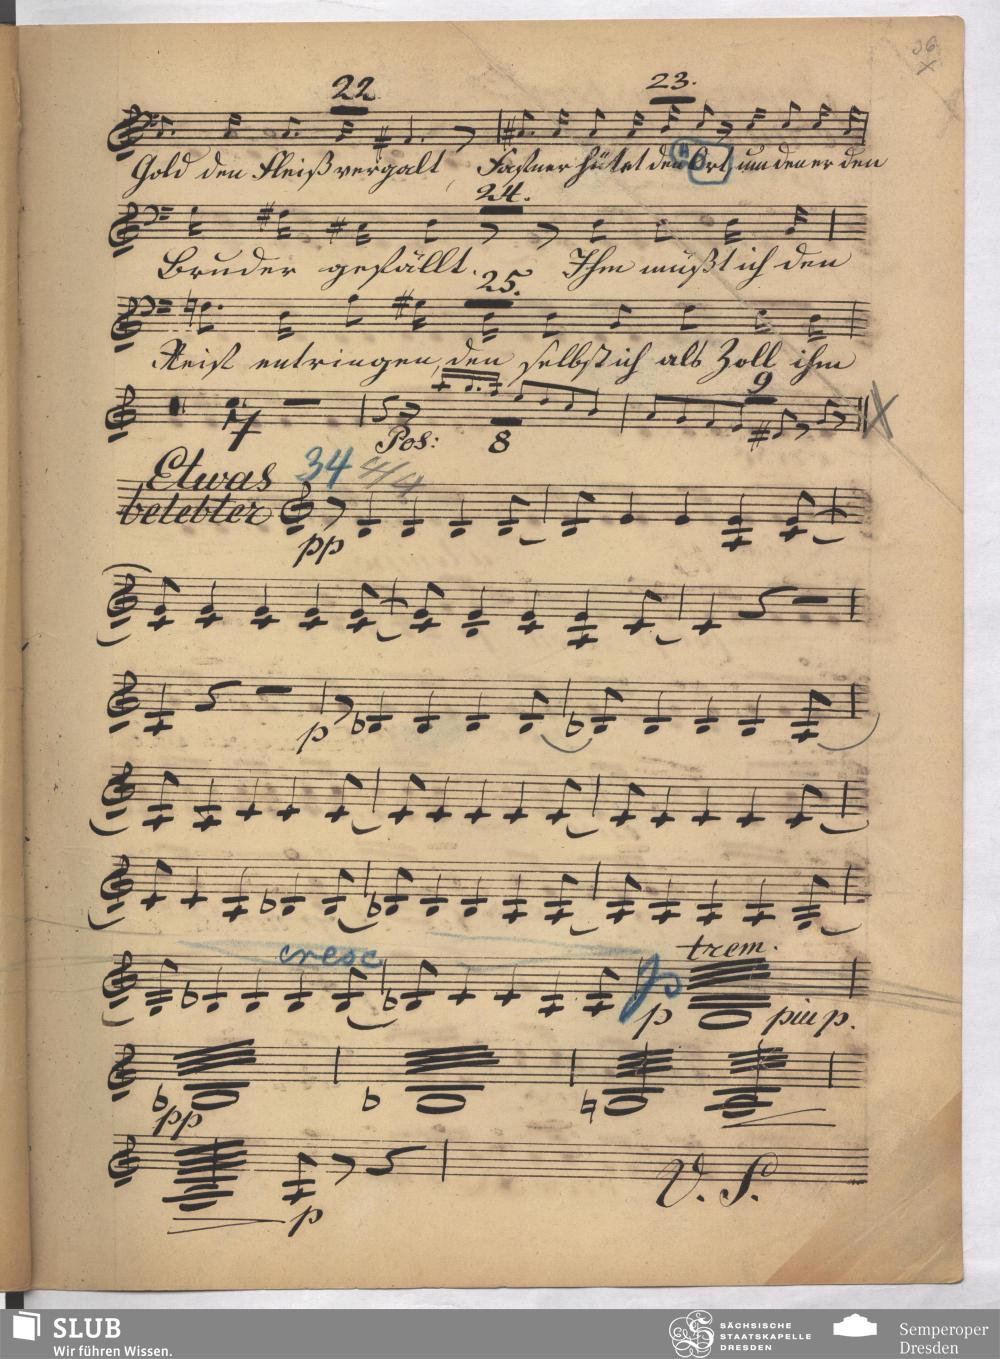 36
x
22
23.
Gold den Fleiß vergalt, Fafner hütet den Hort, um den er den
24.
Bruder gefällt. Ihm müßt ich den
25.
Reif entringen, den selbst ich als Zoll ihm
7
Pos:
8
9
Etwas
belebter
34
4/4
pp
p
cresc
trem.
p
p
piu p.
pp
p
V. S.
SLUB
Wir führen Wissen.
SÄCHSISCHE
STAATSKAPELLE
DRESDEN
Semperoper
Dresden